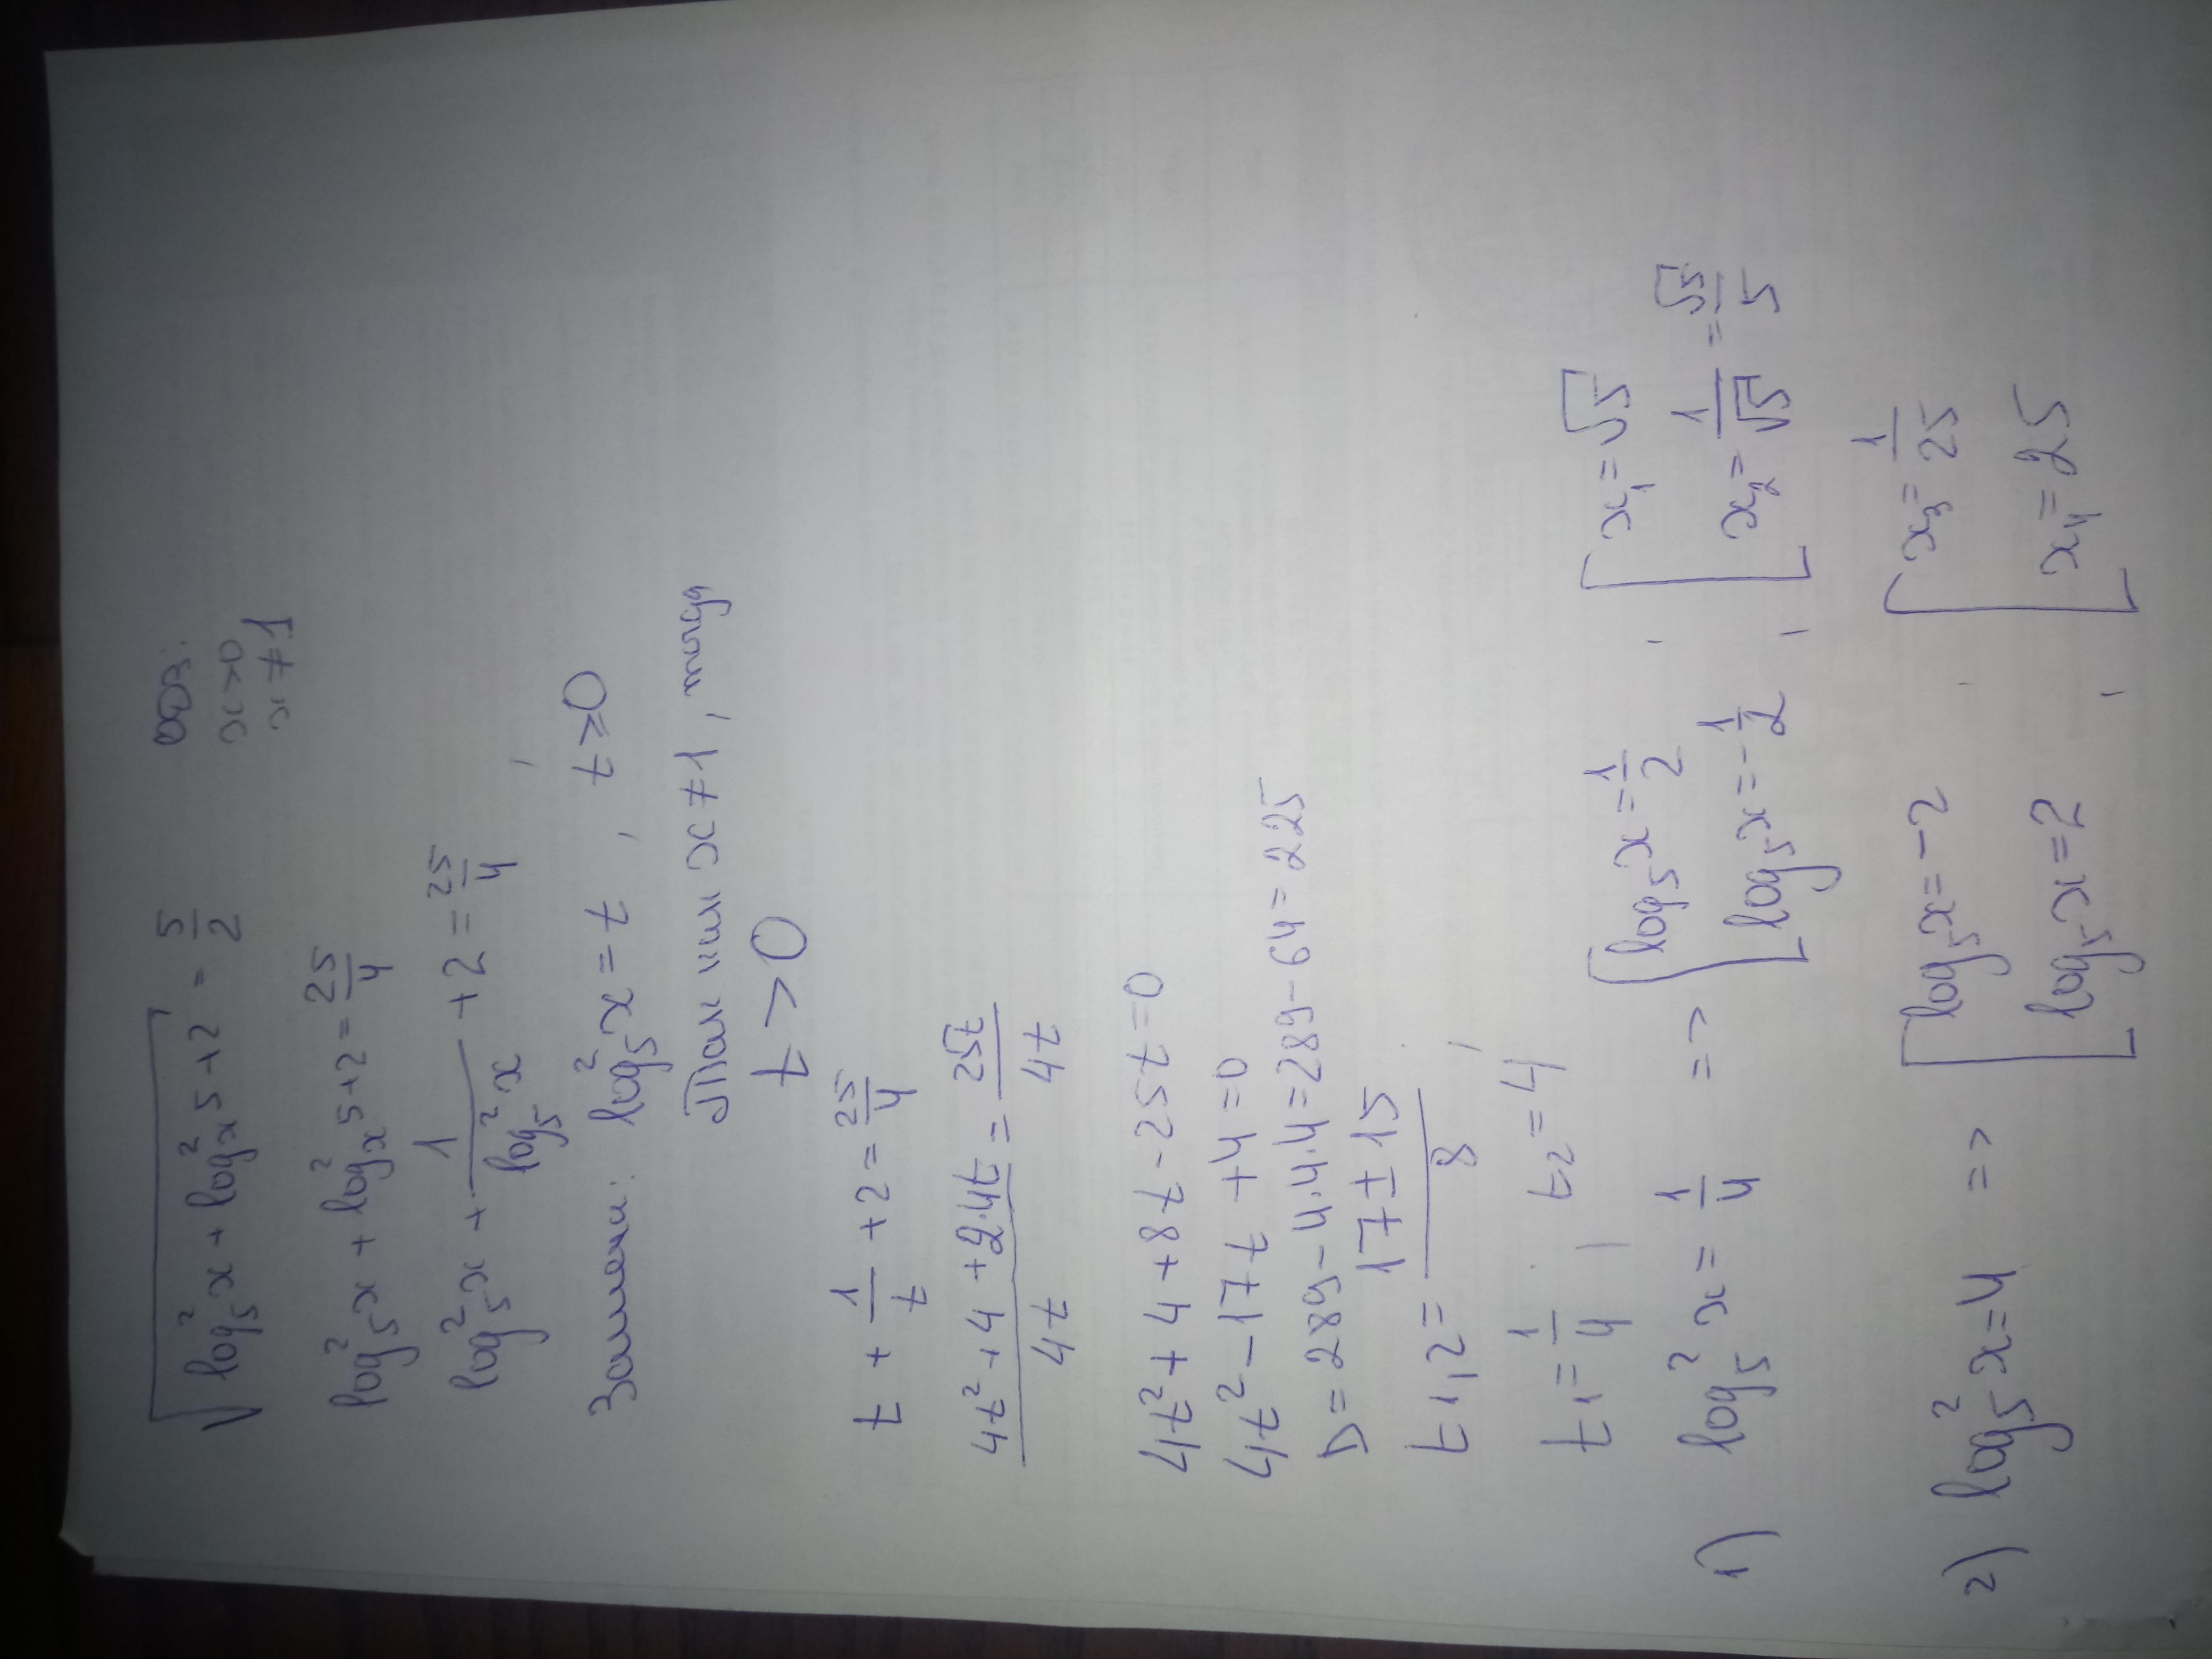 √(log₅²x + log²ₓ5 + 2) = 5/2 ОДЗ:
x>0
x≠1
log₅²x + log²ₓ5 + 2 = 25/4
log₅²x + 1/log₅²x + 2 = 25/4,
Замена: log₅²x = t, t ≥ 0
Так как x≠1, тогда
t > 0
t + 1/t + 2 = 25/4
(4t² + 4 + 2·4t)/4t = 25t/4t
4t² + 4 + 8t - 25t = 0
4t² - 17t + 4 = 0
D = 289 - 4·4·4 = 289 - 64 = 225
t₁,₂ = (17 ± 15)/8;
t₁ = 1/4; t₂ = 4
1) log₅²x = 1/4 => [log₅x = 1/2, [x₁ = √5
[log₅x = -1/2, [x₂ = 1/√5 = √5/5
2) log₅²x = 4 => [log₅x = -2, [x₃ = 1/25
[log₅x = 2, [x₄ = 25